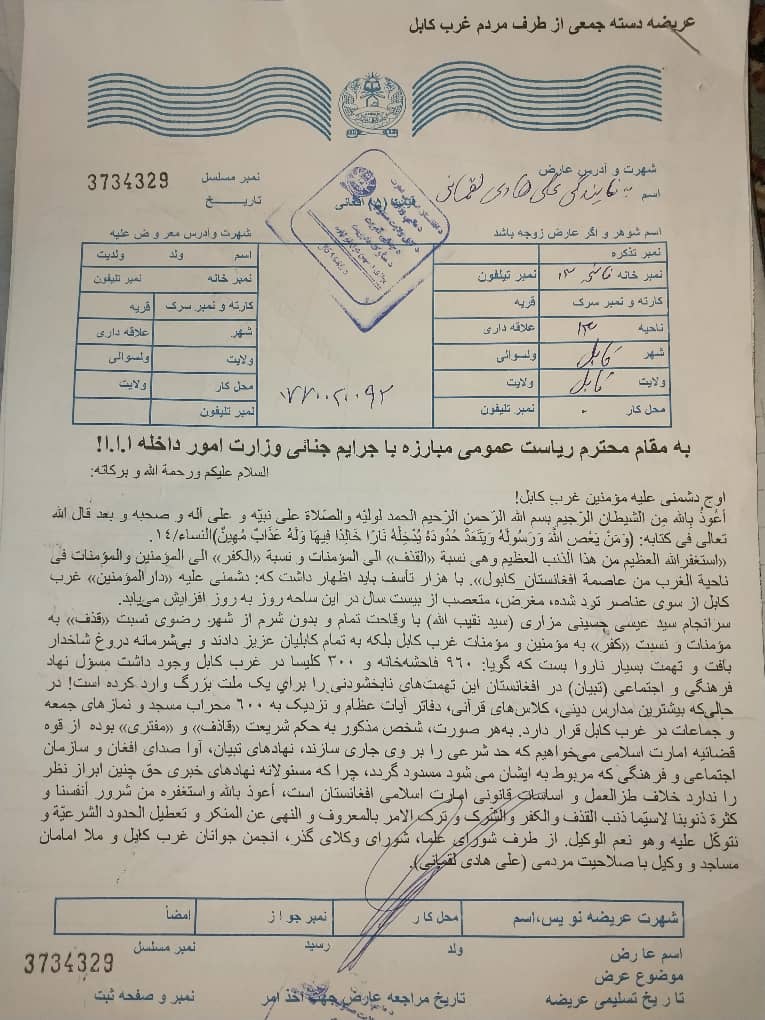 عریضه دسته جمعی از طرف مردم غرب کابل
شهرت و آدرس عارض
3734329 نمبر مسلسل
اسم به نمایندگی علی هادی لقمانی
تاریـــــخ
اسم شوهر و اگر عارض زوجه باشد
شهرت وادرس معر و ض علیه
نمبر تذکره
نمبر خانه نمبر تیلفون
کارته و نمبر سرک قریه
ناحیه ۱۳ علاقه داری
شهر کابل ولسوالی
ولایت کابل ولایت
محل کار نمبر تلیفون
اسم ولد ولدیت
نمبر خانه نمبر تلیفون
کارته و نمبر سرک قریه
شهر علاقه داری
ولایت ولسوالی
محل کار ولایت
نمبر تلیفون
به مقام محترم ریاست عمومی مبارزه با جرایم جنائی وزارت امور داخله ا.ا.ا!
السلام علیکم ورحمة الله و برکاته:
اوج دشمنی علیه مؤمنین غرب کابل!
أعُوذُ بالله مِن الشیطان الرَّجیم بسم الله الرّحمن الرّحیم الحمد لولیّه والصّلاة علی نبیّه و علی آله و صحبه و بعد قال الله
تعالی فی کتابه: (وَمَنْ یَعْصِ اللَّهَ وَرَسُولَهُ وَیَتَعَدَّ حُدُودَهُ یُدْخِلْهُ نَارًا خَالِدًا فِیهَا وَلَهُ عَذَابٌ مُهِینٌ)النساء/۱۴.
«استغفرالله العظیم من هذا الذنب العظیم وهی نسبة «القذف» الی المؤمنات و نسبة «الکفر» الی المؤمنین والمؤمنات فی
ناحیة الغرب من عاصمة افغانستان_کابول». با هزار تأسف باید اظهار داشت که: دشمنی علیه «دارالمؤمنین» غرب
کابل از سوی عناصر تود شده، مغرض، متعصب از بیست سال در این ساحه روز به روز افزایش می‌یابد.
سرانجام سید عیسی حسینی مزاری (سید نقیب الله) با وقاحت تمام و بدون شرم از شهر. رضوی نسبت «قذف» به
مؤمنات و نسبت «کفر» به مؤمنین و مؤمنات غرب کابل بلکه به تمام کابلیان عزیز دادند و بی‌شرمانه دروغ شاخدار
بافت و تهمت بسیار ناروا بست که گویا: ۹۶۰ فاحشه‌خانه و ۳۰۰ کلیسا در غرب کابل وجود داشت مسؤل نهاد
فرهنگی و اجتماعی (تبیان) در افغانستان این تهمت‌های نابخشودنی را برای یک ملت بزرگ وارد کرده است! در
حالی‌که بیشترین مدارس دینی، کلاس‌های قرآنی، دفاتر آیات عظام و نزدیک به ۶۰۰ محراب مسجد و نماز های جمعه
و جماعات در غرب کابل قرار دارد. به‌هر صورت، شخص مذکور به حکم شریعت «قاذف» و «مفتری» بوده از قوه
قضائیه امارت اسلامی می‌خواهیم که حد شرعی را بر وی جاری سازند، نهادهای تبیان، آوا صدای افغان و سازمان
اجتماعی و فرهنگی که مربوط به ایشان می شود مسدود گردد، چرا که مسئولانه نهادهای خبری حق چنین ابراز نظر
را ندارد خلاف طرزالعمل و اساسات قانونی امارت اسلامی افغانستان است، أعوذ بالله واستغفره من شرور أنفسنا و
کثرة ذنوبنا لاسیّما ذنب القذف والکفر والشرک و ترک الامر بالمعروف و النهی عن المنکر و تعطیل الحدود الشرعیّة و
نتوکّل علیه وهو نعم الوکیل. از طرف شورای علما، شورای وکلای گذر، انجمن جوانان غرب کابل و ملا امامان
مساجد و وکیل با صلاحیت مردمی (علی هادی لقمانی).
شهرت عریضه نو یس،اسم محل کا ر نمبر جو ا ز امضأ
اسم عا رض ولد رسید نمبر مسلسل 3734329
موضوع عرض
تا ر یخ تسلیمی عریضه تاریخ مراجعه عارض جهت اخذ امر نمبر و صفحه ثبت